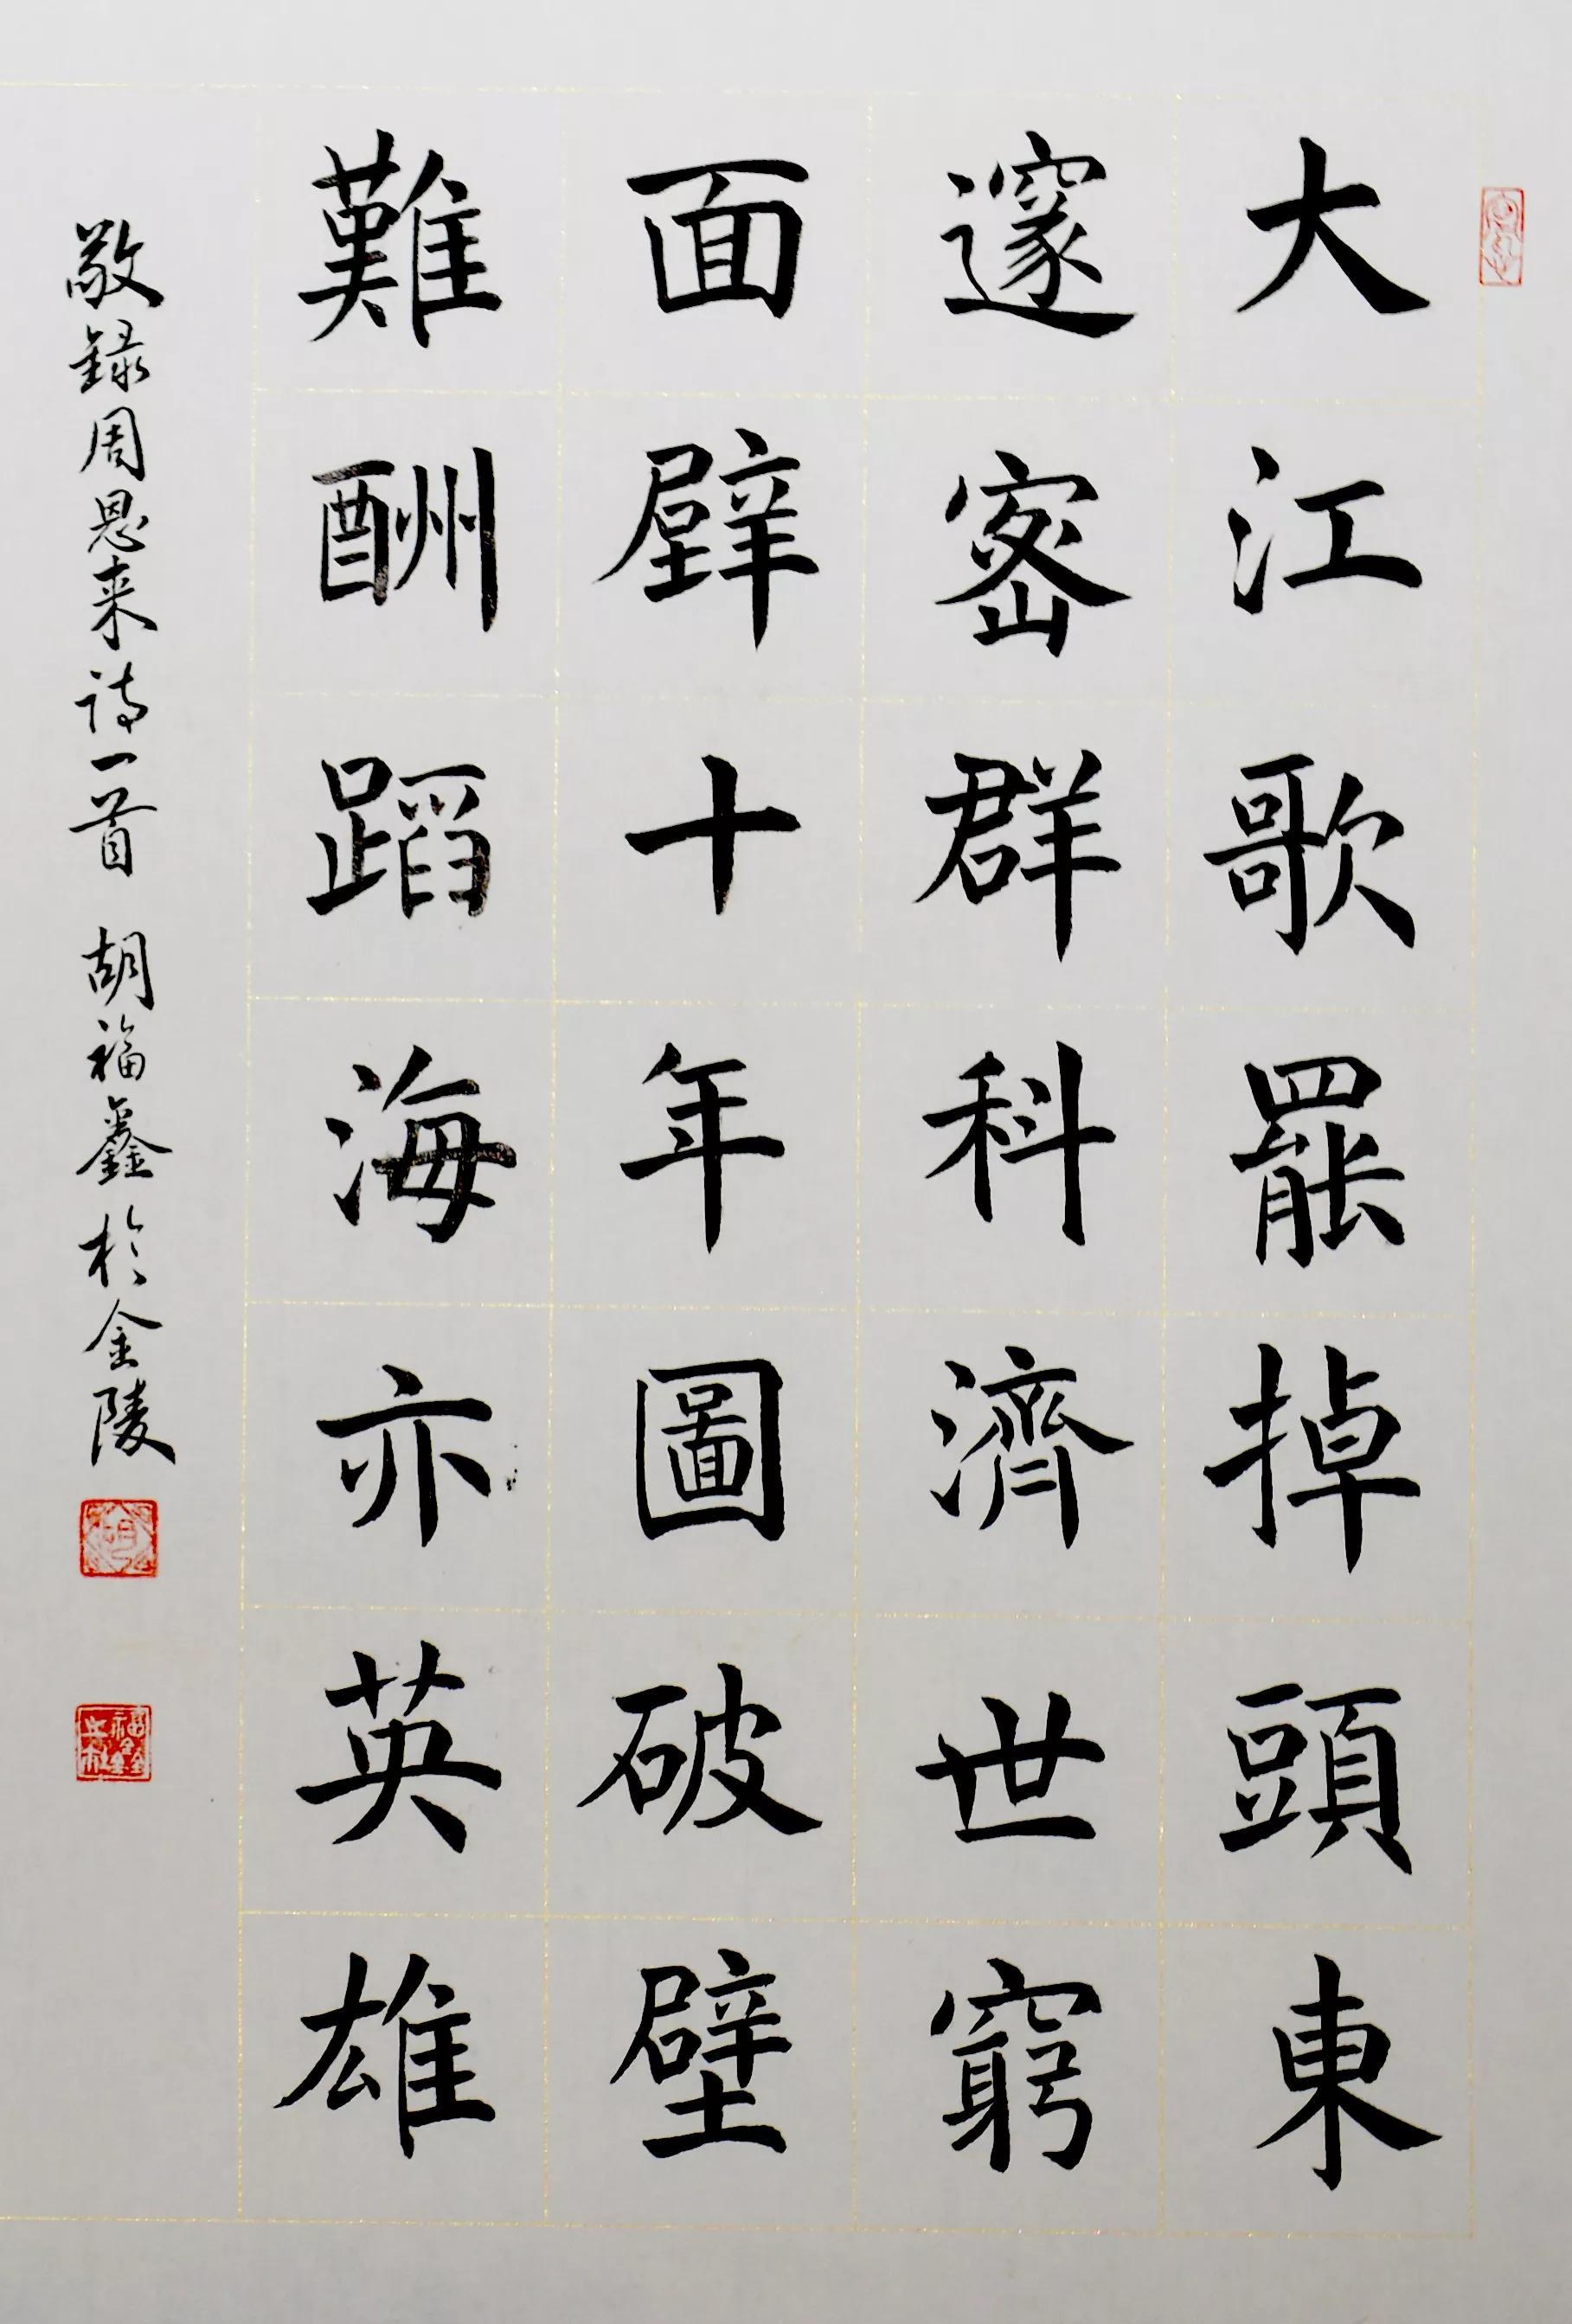 大江歌罷掉頭東
邃密群科濟世窮
面壁十年圖破壁
難酬蹈海亦英雄
敬録周恩来诗一首 胡福鑫於金陵